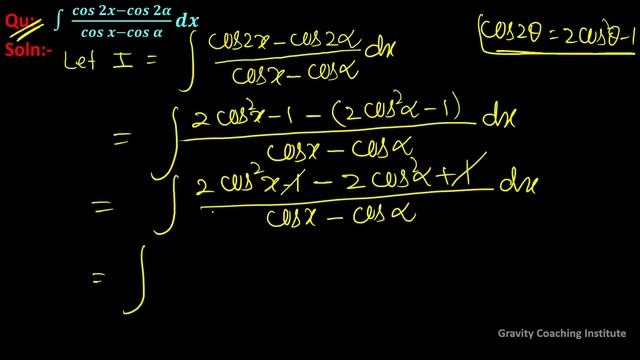 Qu:- ∫ (cos 2x−cos 2α)/(cos x−cos α) dx
cos2θ = 2cos²θ-1
Soln:- Let I = ∫ (cos2x - cos2α)/(cosx - cosα) dx
= ∫ (2cos²x-1 - (2cos²α-1))/(cosx - cosα) dx
= ∫ (2cos²x-1 - 2cos²α+1)/(cosx - cosα) dx
= ∫
Gravity Coaching Institute